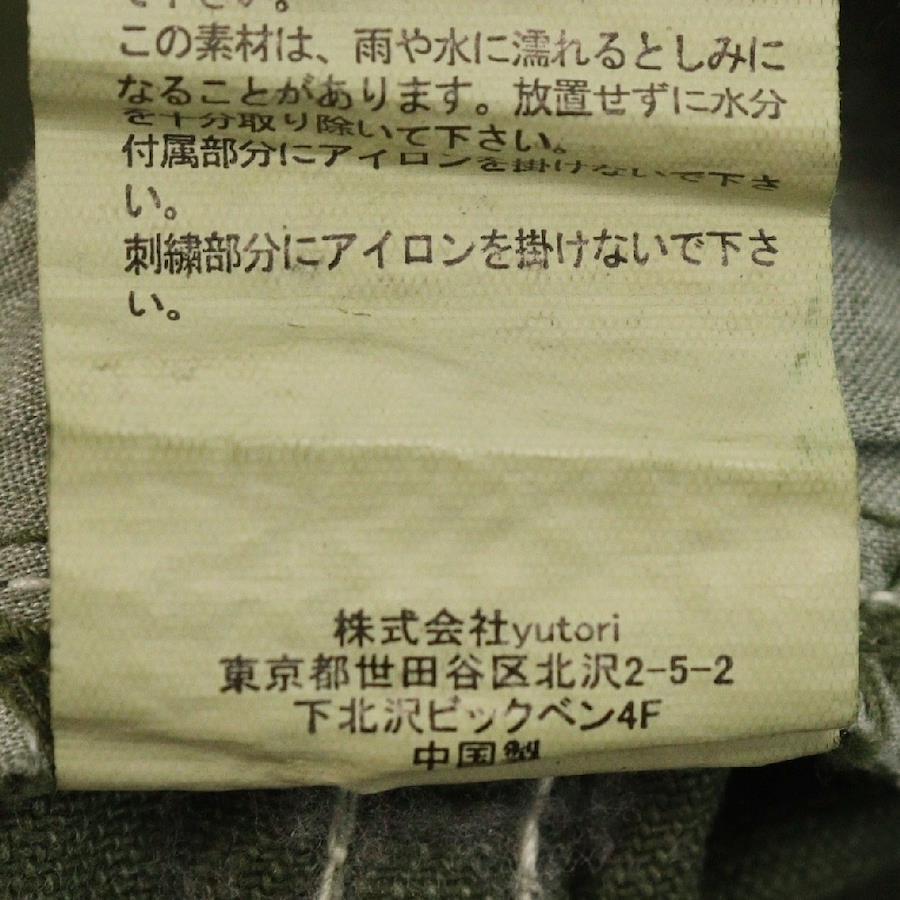 て下さい。
この素材は、雨や水に濡れるとしみに
なることがあります。放置せずに水分
を十分取り除いて下さい。
付属部分にアイロンを掛けないで下さ
い。
刺繍部分にアイロンを掛けないで下さ
い。
株式会社yutori
東京都世田谷区北沢2-5-2
下北沢ビックベン4F
中国製